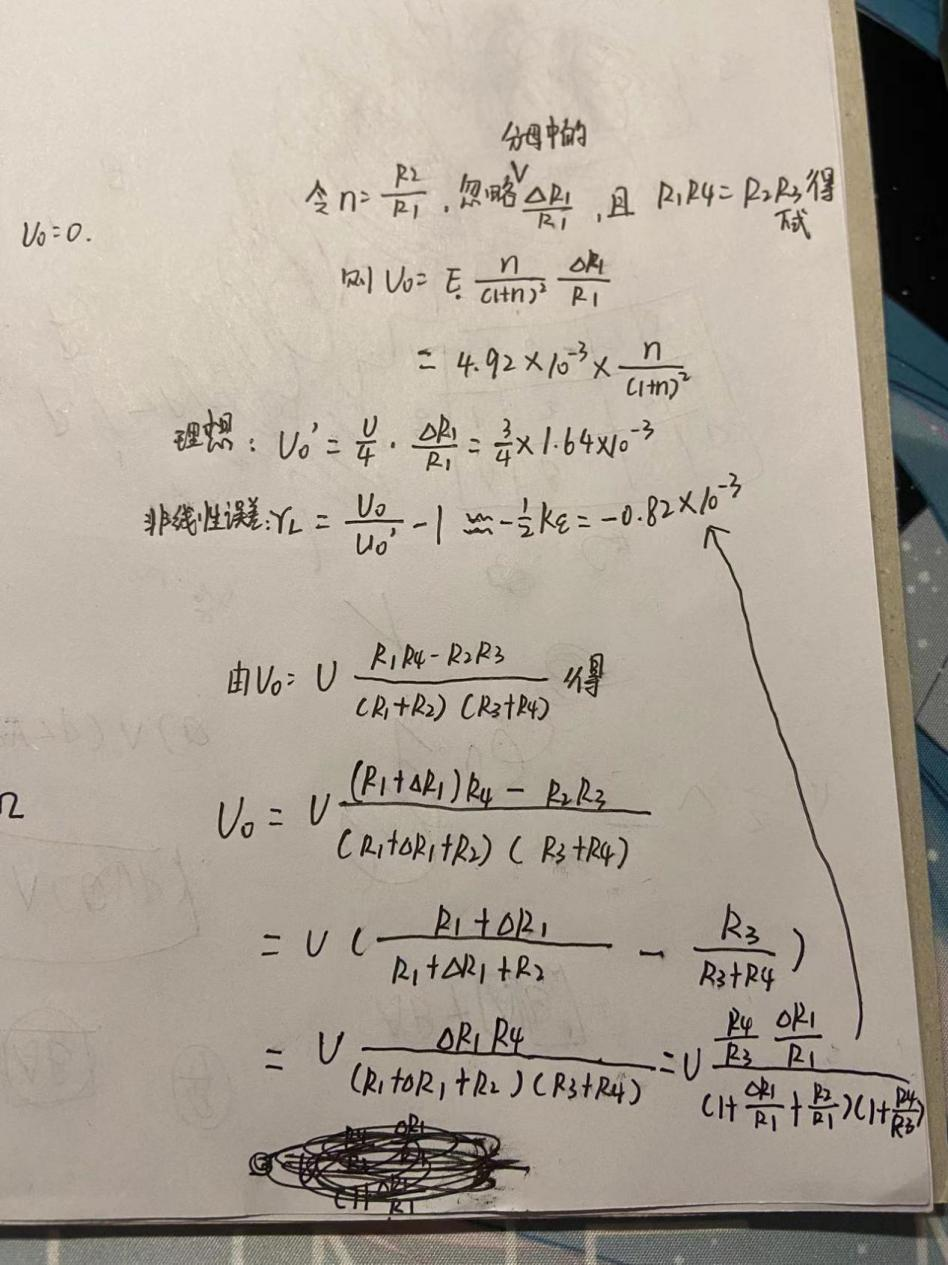 分母中的
令 n = R2/R1 , 忽略 ΔR1/R1 , 且 R1R4 = R2R3 得
下式
U0 = 0.
则 U0 = E. n/(1+n)² ΔR1/R1
= 4.92 × 10⁻³ × n/(1+n)²
理想: U0' = U/4 · ΔR1/R1 = 3/4 × 1.64×10⁻³
非线性误差: γL = U0/U0' - 1 ≈ -1/2 Kε = -0.82 × 10⁻³
由 U0 = U (R1R4 - R2R3)/((R1+R2) (R3+R4)) 得
U0 = U ((R1+ΔR1)R4 - R2R3)/((R1+ΔR1+R2) (R3+R4))
Ω
= U ( (R1+ΔR1)/(R1+ΔR1+R2) - R3/(R3+R4) )
= U ΔR1R4/((R1+ΔR1+R2)(R3+R4)) = U (R4/R3 ΔR1/R1)/((1+ΔR1/R1+R2/R1)(1+R4/R3))